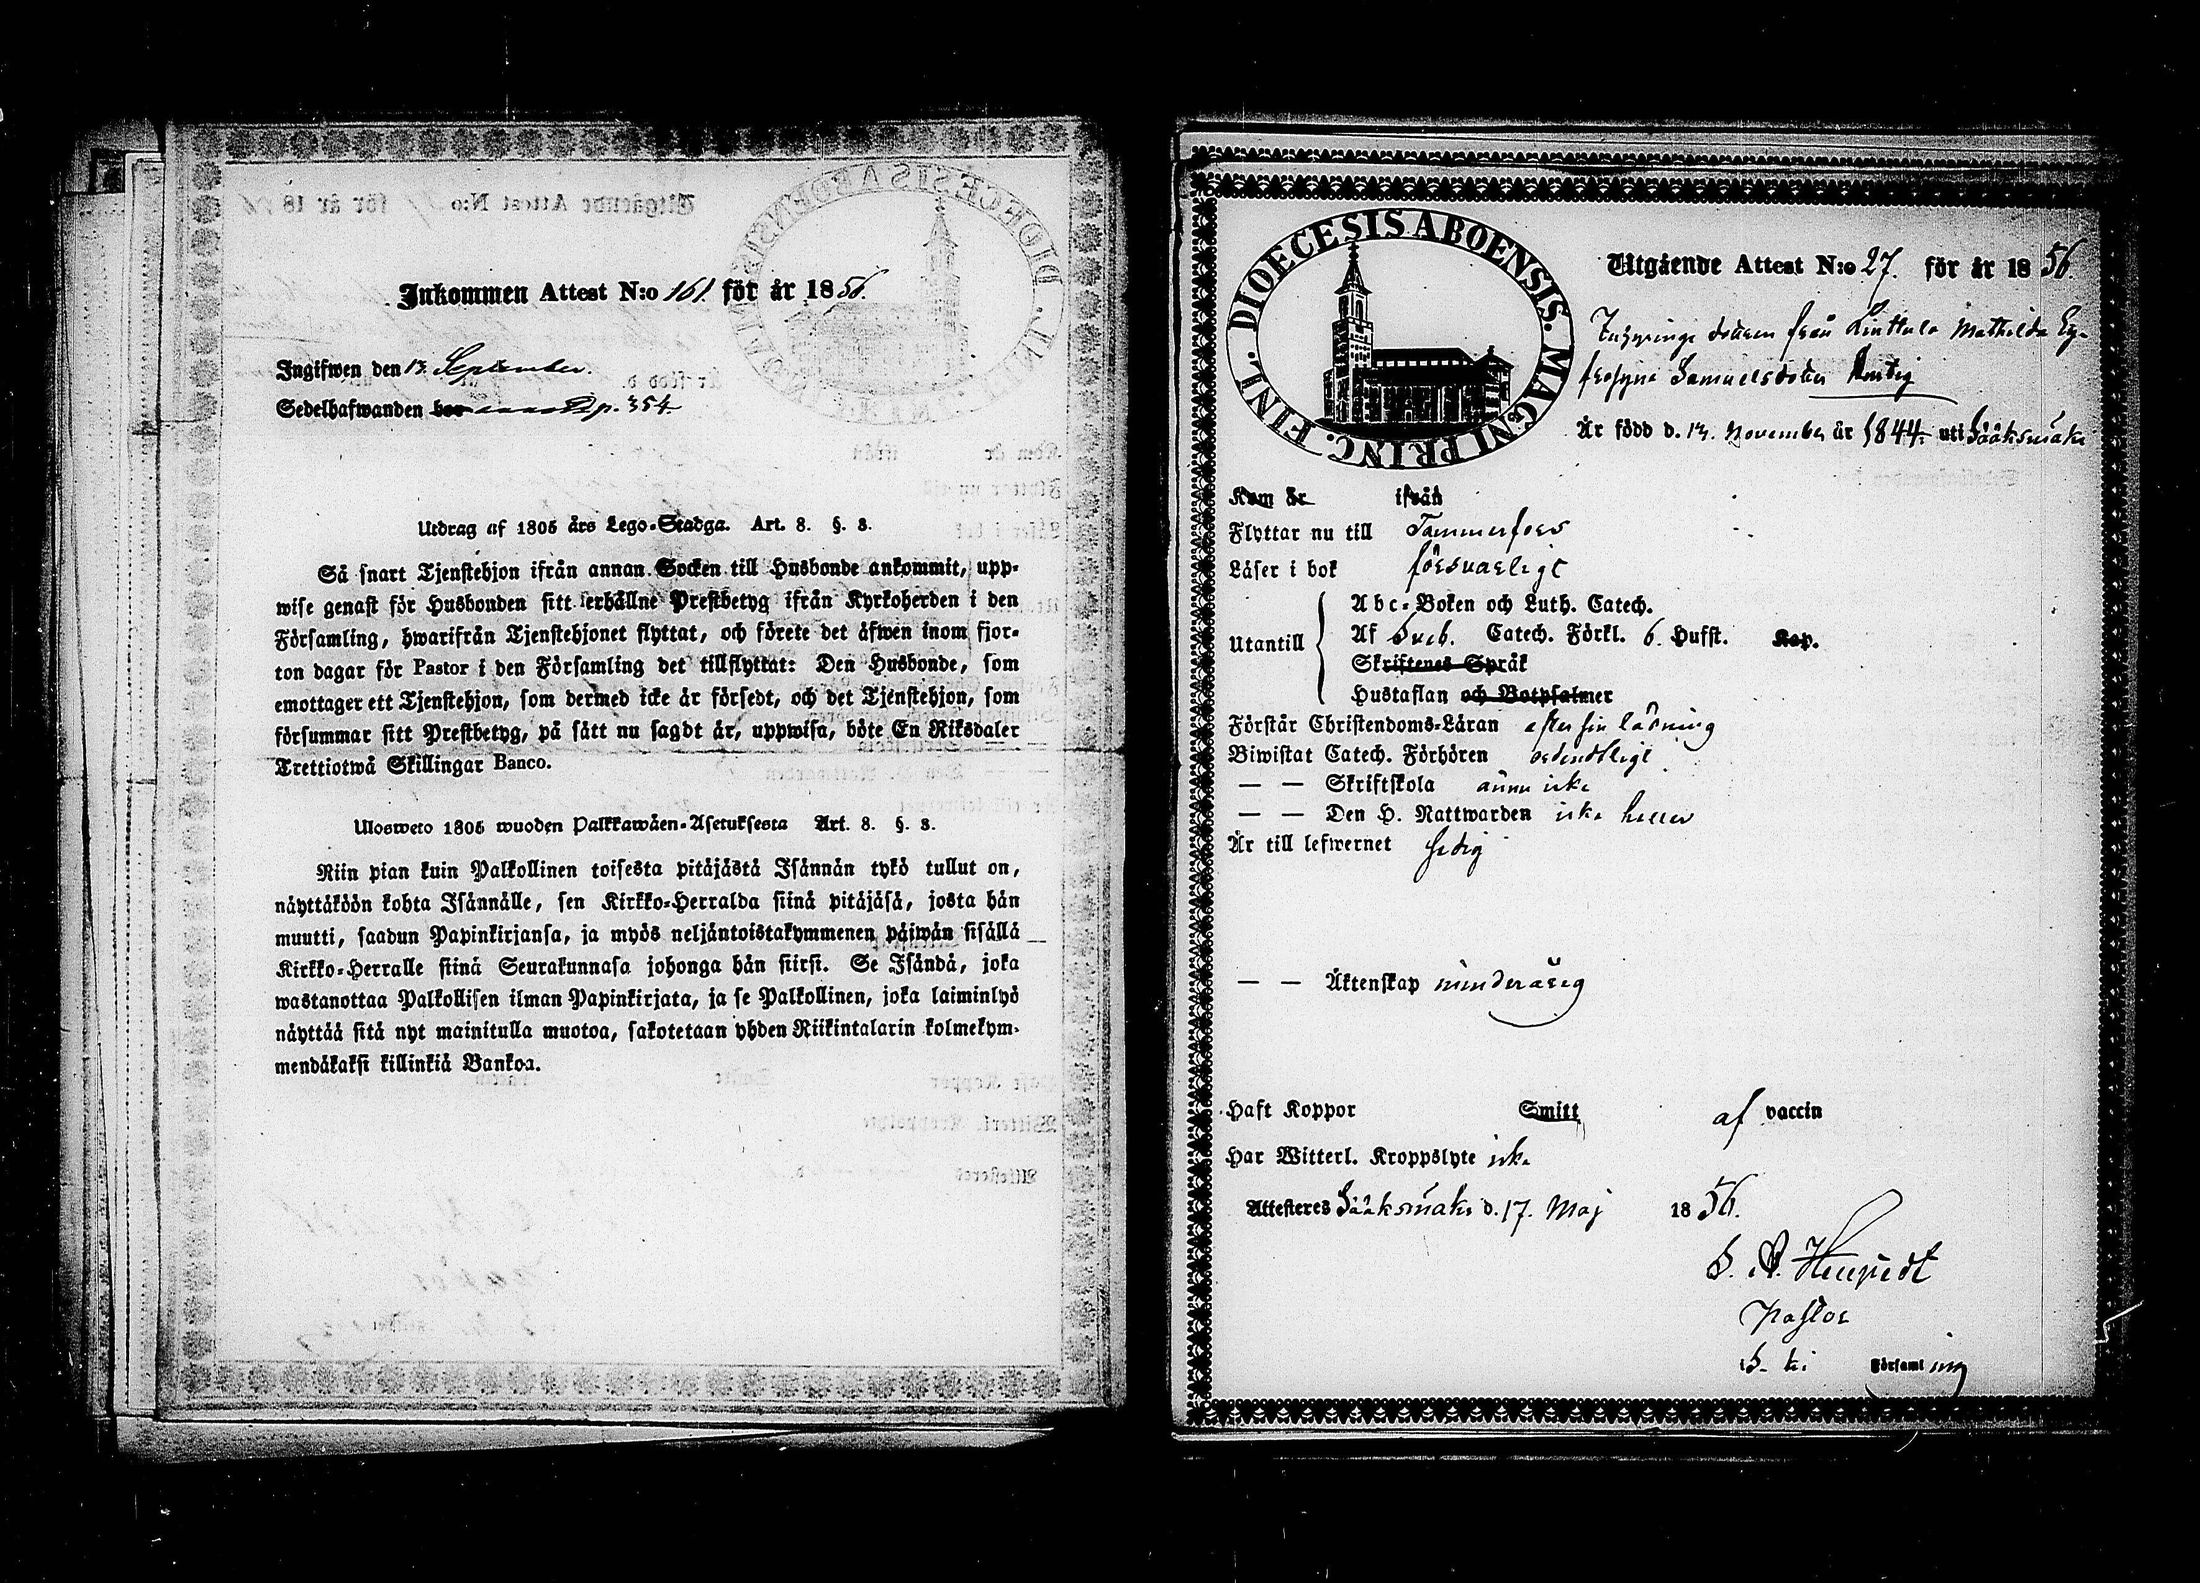 Inkommen Attest N:o 161. för år 1856.
Ingifwen den 13 September.
Sedelhafwanden p. 354
Utdrag af 1805 års Lego-Stadga. Art. 8. §. 8.
Så snart Tjenstehjon ifrån annan Socken till Husbonde ankommit, upp-
wise genast för Husbonden sitt erhållne Prestbetyg ifrån Kyrkoherden i den
Församling, hwarifrån Tjenstehjonet flyttat, och förete det äfwen inom fjor-
ton dagar för Pastor i den Församling det tillflyttat: Den Husbonde, som
emottager ett Tjenstehjon, som dermed icke är försedt, och det Tjenstehjon, som
försummar sitt Prestbetyg, på sätt nu sagdt är, uppwisa, böte En Riksdaler
Trettiotwå Skillingar Banco.
Ulosweto 1805 wuoden Palkkawäen-Asetuksesta Art. 8. §. 8.
Niin pian kuin Palkollinen toisesta pitäjästä Isännän tykö tullut on,
näyttäköön kohta Isännälle, sen Kirkko-Herralda siinä pitäjäsä, josta hän
muutti, saadun Papinkirjansa, ja myös neljäntoistakymmenen päiwän sisällä
Kirkko-Herralle siinä Seurakunnasa johonga hän siirsi. Se Isändä, joka
wastanottaa Palkollisen ilman Papinkirjata, ja se Palkollinen, joka laiminlyö
näyttää sitä nyt mainitulla muotoa, sakotetaan yhden Riikintalarin kolmekym-
mendäkaksi killinkiä Bankoa.
DIOECESIS ABOENSIS. MAGNI PRINC. FINL.
Utgående Attest N:o 27. för år 1856.
från Linttula Mathilda Eu-
frosyne Samuelsdotter
Är född d. 13. November år 1844. uti Sääksmäki
Kom år ifrån
Flyttar nu till Tammerfors
Läser i bok försvarligt
Utantill
Abc-Boken och Luth. Catech.
Af Sveb. Catech. Förkl. 6. Hufst. Kap.
Skriftenes Språk
Hustaflan och Botpsalmer
Förstår Christendoms-Läran efter sin ådning
Biwistat Catech. Förhören ordentligt
— — Skriftskola ännu icke
— — Den H. Nattwarden icke heller
Är till lefwernet sedig
— — Äktenskap minderårig
Haft Koppor Smitt af vaccin
Har Witterl. Kroppslyte icke
Attesteres Sääksmäki d. 17. Maj 1856.
Pastor
S-ki Församling